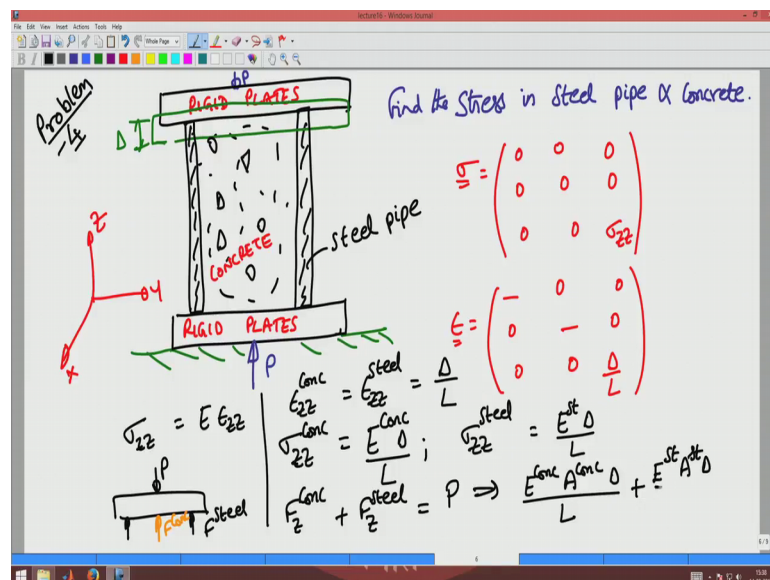 lecture16 - Windows Journal
File Edit View Insert Actions Tools Help
Whole Page
B I
Problem
-4
P
RIGID PLATES
Δ
CONCRETE
steel pipe
RIGID PLATES
P
Z
Y
X
Find the stress in steel pipe & concrete.
σ = ( 0 0 0
0 0 0
0 0 σzz )
ε = ( - 0 0
0 - 0
0 0 Δ/L )
σzz = E εzz
P
F^conc F^steel
εzz^conc = εzz^steel = Δ/L
σzz^conc = E^conc Δ/L ; σzz^steel = E^st Δ/L
Fz^conc + Fz^steel = P ⇒ E^conc A^conc Δ/L + E^st A^st Δ
6
6/9
15:38